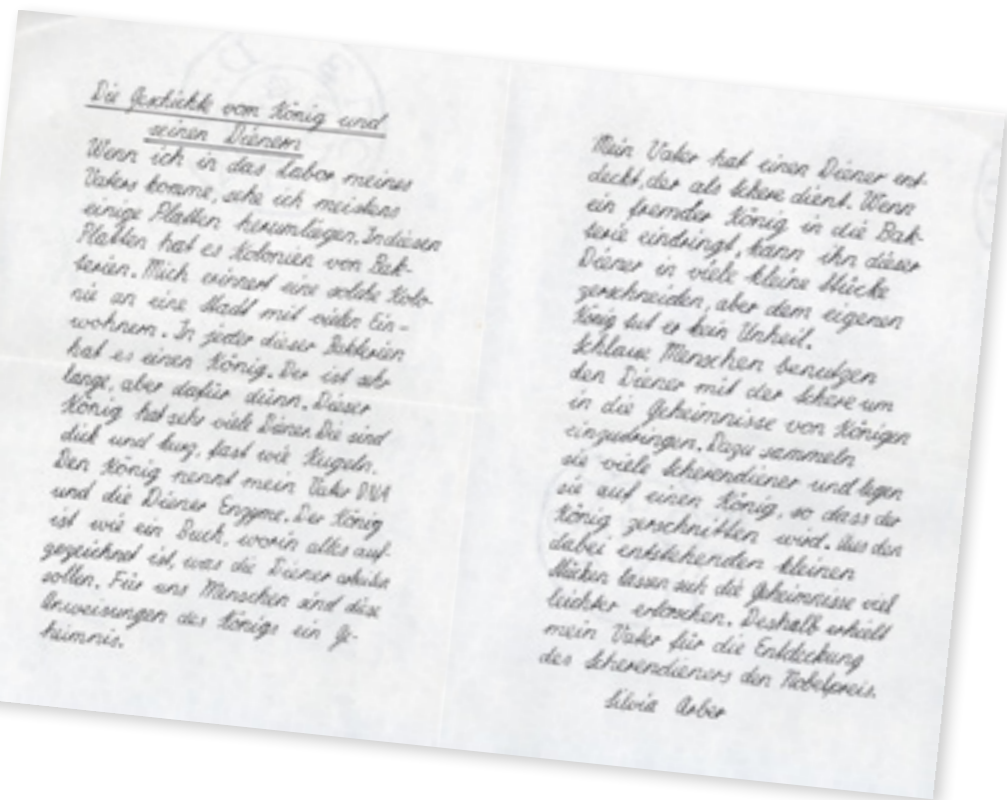 Die Geschichte vom König und
seinen Dienern
Wenn ich in das Labor meines
Vaters komme, sehe ich meistens
einige Platten herumliegen. In diesen
Platten hat es Kolonien von Bak-
terien. Mich erinnert eine solche Kolo-
nie an eine Stadt mit vielen Ein-
wohnern. In jeder dieser Bakterien
hat es einen König. Der ist sehr
lange, aber dafür dünn. Dieser
König hat sehr viele Diener. Die sind
dick und kurz, fast wie Kugeln.
Den König nennt mein Vater DNA
und die Diener Enzyme. Der König
ist wie ein Buch, worin alles auf-
gezeichnet ist, was die Diener arbeiten
sollen. Für uns Menschen sind diese
Anweisungen des Königs ein Ge-
heimnis.
Mein Vater hat einen Diener ent-
deckt, der als Schere dient. Wenn
ein fremder König in die Bak-
terie eindringt, kann ihn dieser
Diener in viele kleine Stücke
zerschneiden, aber dem eigenen
König tut er kein Unheil.
Schlaue Menschen benutzen
den Diener mit der Schere um
in die Geheimnisse von Königen
einzudringen. Dazu sammeln
sie viele Scherendiener und legen
sie auf einen König, so dass der
König zerschnitten wird. Aus den
dabei entstehenden kleinen
Stücken lassen sich die Geheimnisse viel
leichter erforschen. Deshalb erhielt
mein Vater für die Entdeckung
des Scherendieners den Nobelpreis.
Silvia Arber